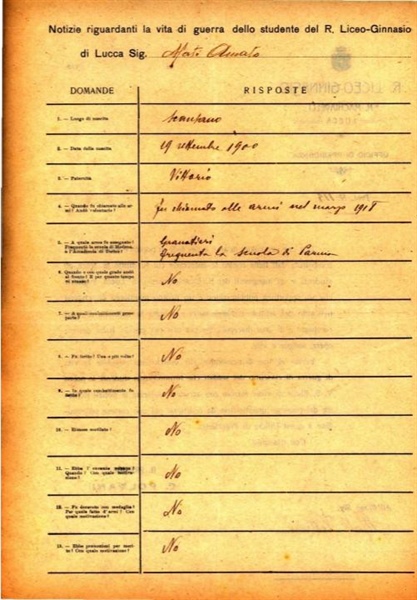 Notizie riguardanti la vita di guerra dello studente del R. Liceo-Ginnasio
di Lucca Sig. Amato
DOMANDE RISPOSTE
1. — Luogo di nascita
2. — Data della nascita 19 settembre 1900
3. — Paternità Vittorio
4. — Quando fu chiamato alle armi? Andò volontario? fu chiamato alle armi nel marzo 1918
5. — A quale arma fu assegnato? Granatieri
Frequentò la scuola di Modena o l'Accademia di Torino? frequenta la scuola di Parma
6. — Quando e con quale grado andò al fronte? E per quanto tempo vi rimase? No
7. — A quali combattimenti prese parte? No
8. — Fu ferito? Una o più volte? No
9. — In quale combattimento fu ferito? No
10. — Rimase mutilato? No
11. — Ebbe l'encomio solenne? Quando? Con quale motivazione? No
12. — Fu decorato con medaglia? Per quale fatto d'armi? Con quale motivazione? No
13. — Ebbe promozioni per merito? Con quale motivazione? No